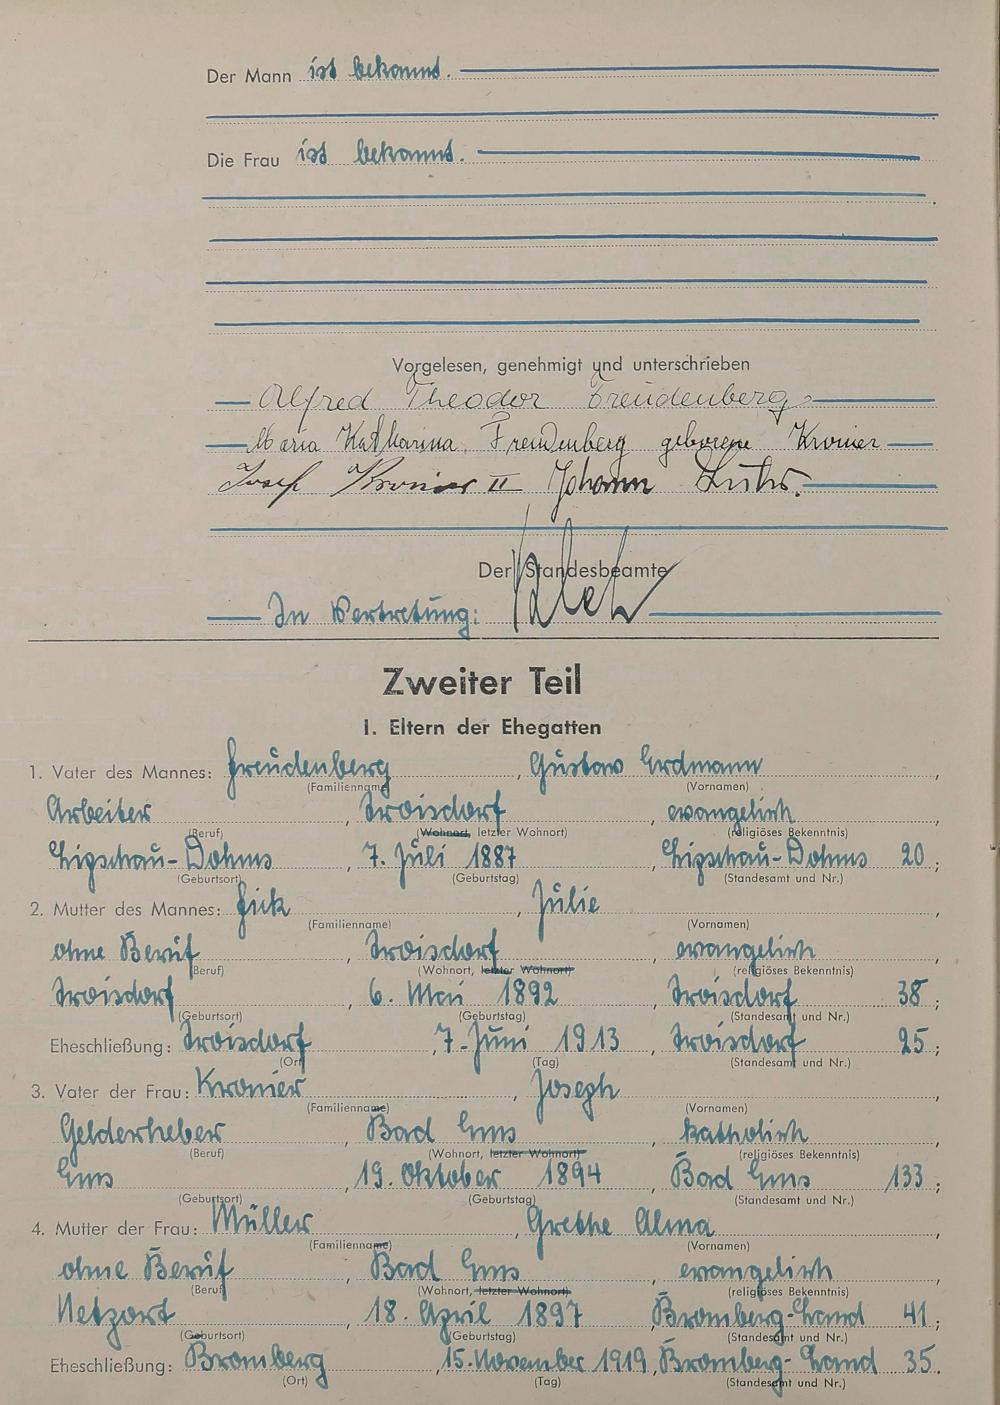 Der Mann ist bekannt.
Die Frau ist bekannt.
Vorgelesen, genehmigt und unterschrieben
Alfred Theodor Freudenberg
Maria Katharina Freudenberg geborene Kronier
Josef Kronier II Johann
Der Standesbeamte
In Vertretung:
Zweiter Teil
I. Eltern der Ehegatten
1. Vater des Mannes: Freudenberg, Gustav Erdmann,
(Familienname) (Vornamen)
Arbeiter, Troisdorf, evangelisch,
(Beruf) (Wohnort, letzter Wohnort) (religiöses Bekenntnis)
Ligschau-Dohms, 7. Juli 1887, Ligschau-Dohms 20;
(Geburtsort) (Geburtstag) (Standesamt und Nr.)
2. Mutter des Mannes: Fick, Julie,
(Familienname) (Vornamen)
ohne Beruf, Troisdorf, evangelisch,
(Beruf) (Wohnort, letzter Wohnort) (religiöses Bekenntnis)
Troisdorf, 6. Mai 1892, Troisdorf 38;
(Geburtsort) (Geburtstag) (Standesamt und Nr.)
Eheschließung: Troisdorf, 7. Juni 1913, Troisdorf 25;
(Ort) (Tag) (Standesamt und Nr.)
3. Vater der Frau: Kronier, Joseph,
(Familienname) (Vornamen)
Gelderheber, Bad Ems, katholisch,
(Beruf) (Wohnort, letzter Wohnort) (religiöses Bekenntnis)
Ems, 19. Oktober 1894, Bad Ems 133;
(Geburtsort) (Geburtstag) (Standesamt und Nr.)
4. Mutter der Frau: Müller, Grethe Alma,
(Familienname) (Vornamen)
ohne Beruf, Bad Ems, evangelisch,
(Beruf) (Wohnort, letzter Wohnort) (religiöses Bekenntnis)
Netzort, 18. April 1897, Bromberg-Land 41;
(Geburtsort) (Geburtstag) (Standesamt und Nr.)
Eheschließung: Bromberg, 15. November 1919, Bromberg-Land 35.
(Ort) (Tag) (Standesamt und Nr.)